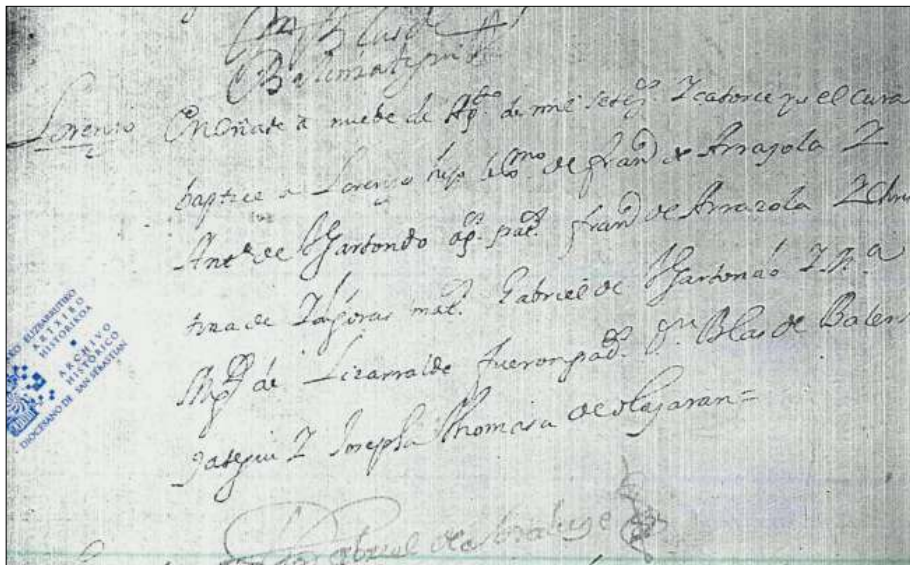 Dn Blas de
Balenzategui
Lorenzo
En Oñate a nuebe de Agto de mil setes. Z catorce yo el cura
baptice a Lorenzo hijo lexmo de franco de Arrazola Z
Anta de Hgartondo as. pat. franco de Arrazola Z
de mat. Gabriel de Hgartondo Z
de Lizarralde fueron pads. Dn Blas de Balen
zategui Z Josepha Thomasa de Olazaran =
Gabriel de
ELIZBARRUTIKO
ARTXIBO
HISTORIKOA
ARCHIVO
HISTÓRICO
DIOCESANO DE SAN SEBASTIAN